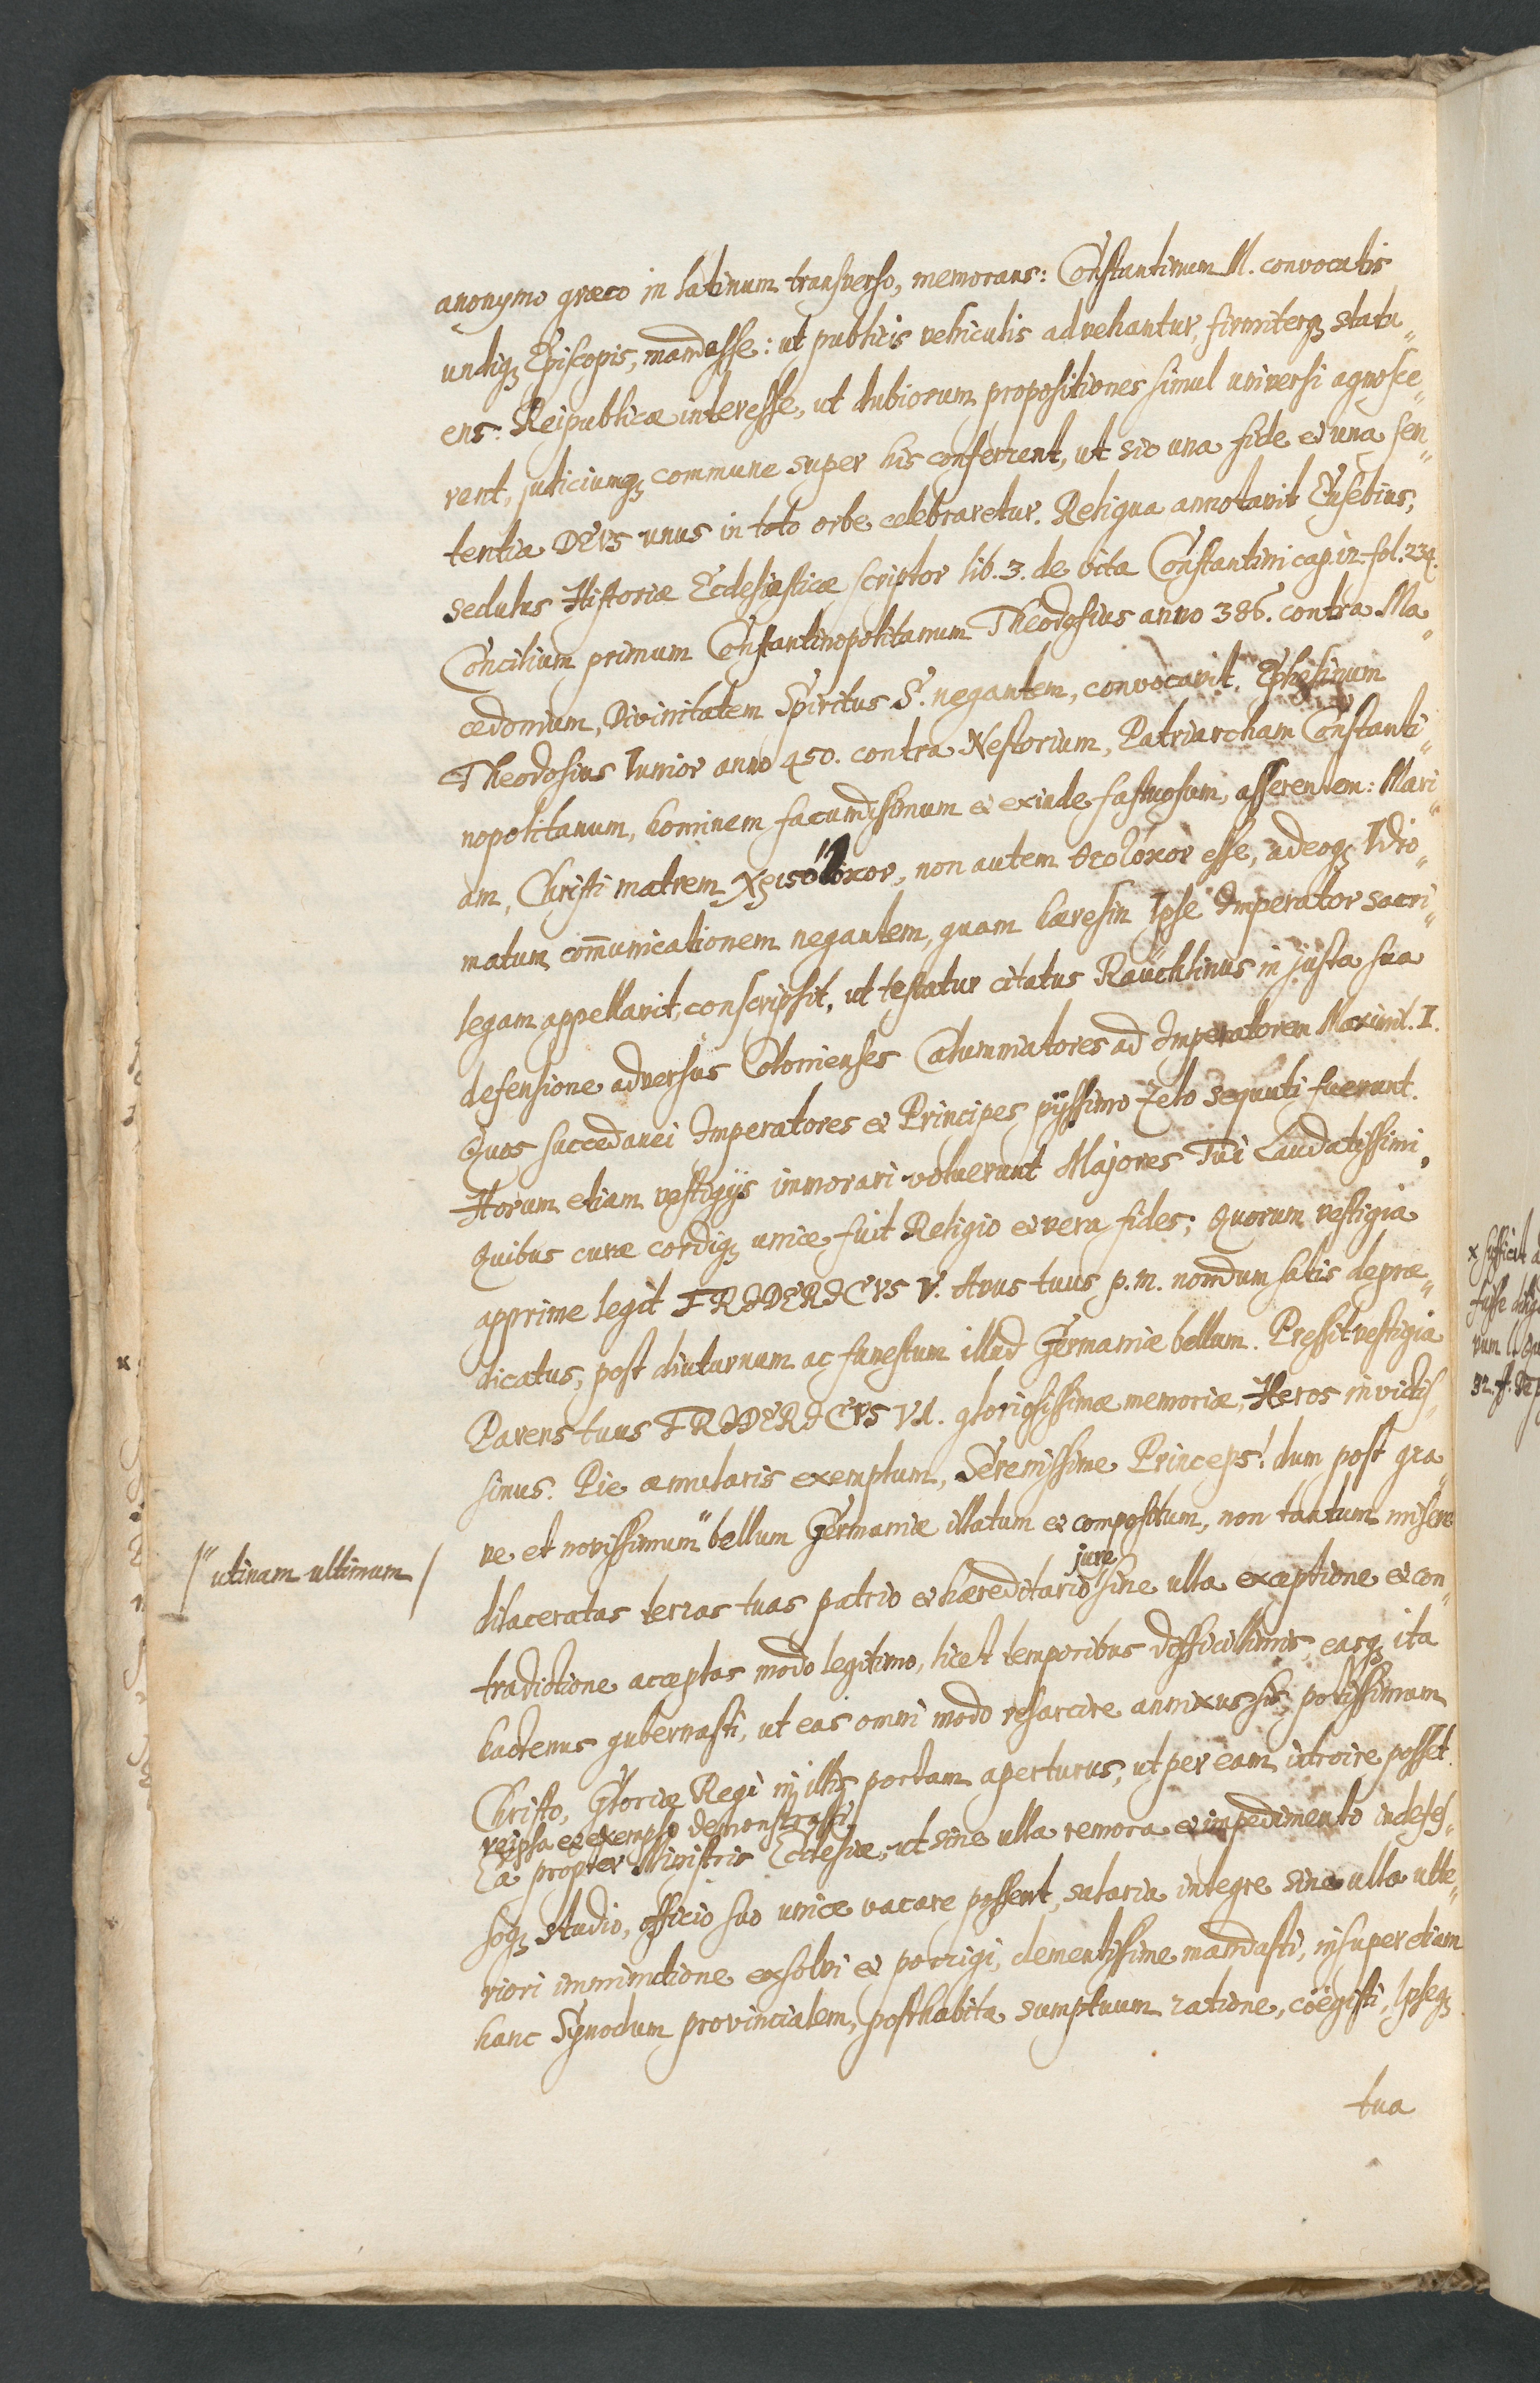 anonymo græco in latinum transverso, memorans: Constantinum M. convocatis
undiq₃ Episcopis, mandasse: ut publicis vehiculis advehantur, firmiterq₃ statu„
ens: Reipublicæ interesse, ut dubiorum propositiones simul universi agnosce„
rent, judiciumq₃ commune super his conferrent, ut sic una fide et una sen„
tentia DEVS unus in toto orbe celebraretur. Reliqua annotavit Eusebius,
sedulus Historiæ Ecclesiasticæ scriptor lib. 3. de vita Constantini cap. 12. fol. 234.
Concilium primum Constantinopolitanum Theodosius anno 386. contra Ma„
cedonium, Divinitatem Spiritus S. negantem, convocavit. Ephesinum
Theodosius Iunior anno 450. contra Nestorium, Patriarcham Constanti„
nopolitanum, hominem facundissimum et exinde fastuosum, asserentem: Mari„
am, Christi matrem χριϛότοκον, non autem θεοτόκον esse, adeoq₃ Idio„
matum com̄unicationem negantem, quam hæresin Ipse Imperator sacri„
legam appellavit, conscripsit, ut testatur citatus Raüchlinus in justa sua
defensione adversus Colonienses Calumniatores ad Imperatorem Maximil. I.
Quos succedanei Imperatores et Principes pijssimo zelo sequuti fuerunt.
Horum etiam vestigijs immorari voluerunt Majores Tui Laudatissimi,
Quibus curæ cordiq₃ unice fuit Religio et vera fides; Quorum vestigia
apprime legit FRIDERICVS V. Avus tuus p. m. nondum satis depræ„
dicatus, post diuturnum ac funestum illud Germaniæ bellum. Pressit vestigia
Parens tuus FRIDERICVS VI. gloriosissimæ memoriæ, Heros invictis„
simus. Pie æmularis exemplum, Serenissime Princeps! dum post gra„
ve et novissimum" bellum Germaniæ illatum et compositum, non tantum misere
/" utinam ultimum /
jure
dilaceratas terras tuas patrio et hæreditario sine ulla exceptione et con„
tradictione acceptas modo legitimo, licet temporibus difficillimis, easq₃ ita
hactenus gubernasti, ut eas omni modo resarcire annixus sis, potissimam
Christo, Gloriæ Regi in illis portam aperturus, ut per eam introire posset.
reipsa et exemplo demonstrasti,
Ea propter Ministris Ecclesiæ, ut sine ulla remora et impedimento indefes„
soq₃ studio, officio suo unice vacare possent, salaria integre sine ulla ulte„
riori imminutione exsolvi et porrigi, clementissime mandasti, insuper etiam
hanc Synodum provincialem, posthabita sumptuum ratione, coëgisti, Ipseq₃
tua